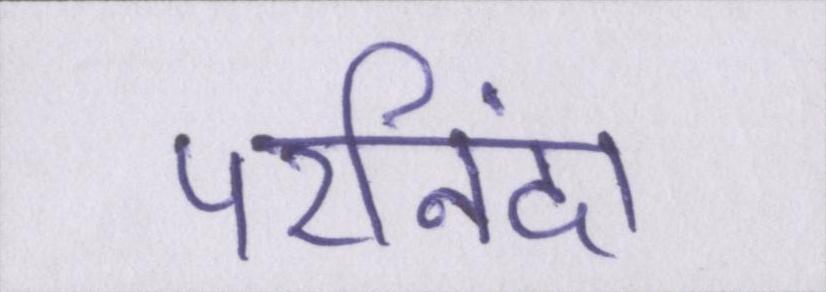 परनिंदा